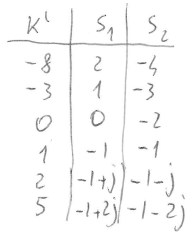 K' S₁ S₂
-8 2 -4
-3 1 -3
0 0 -2
1 -1 -1
2 -1+j -1-j
5 -1+2j -1-2j